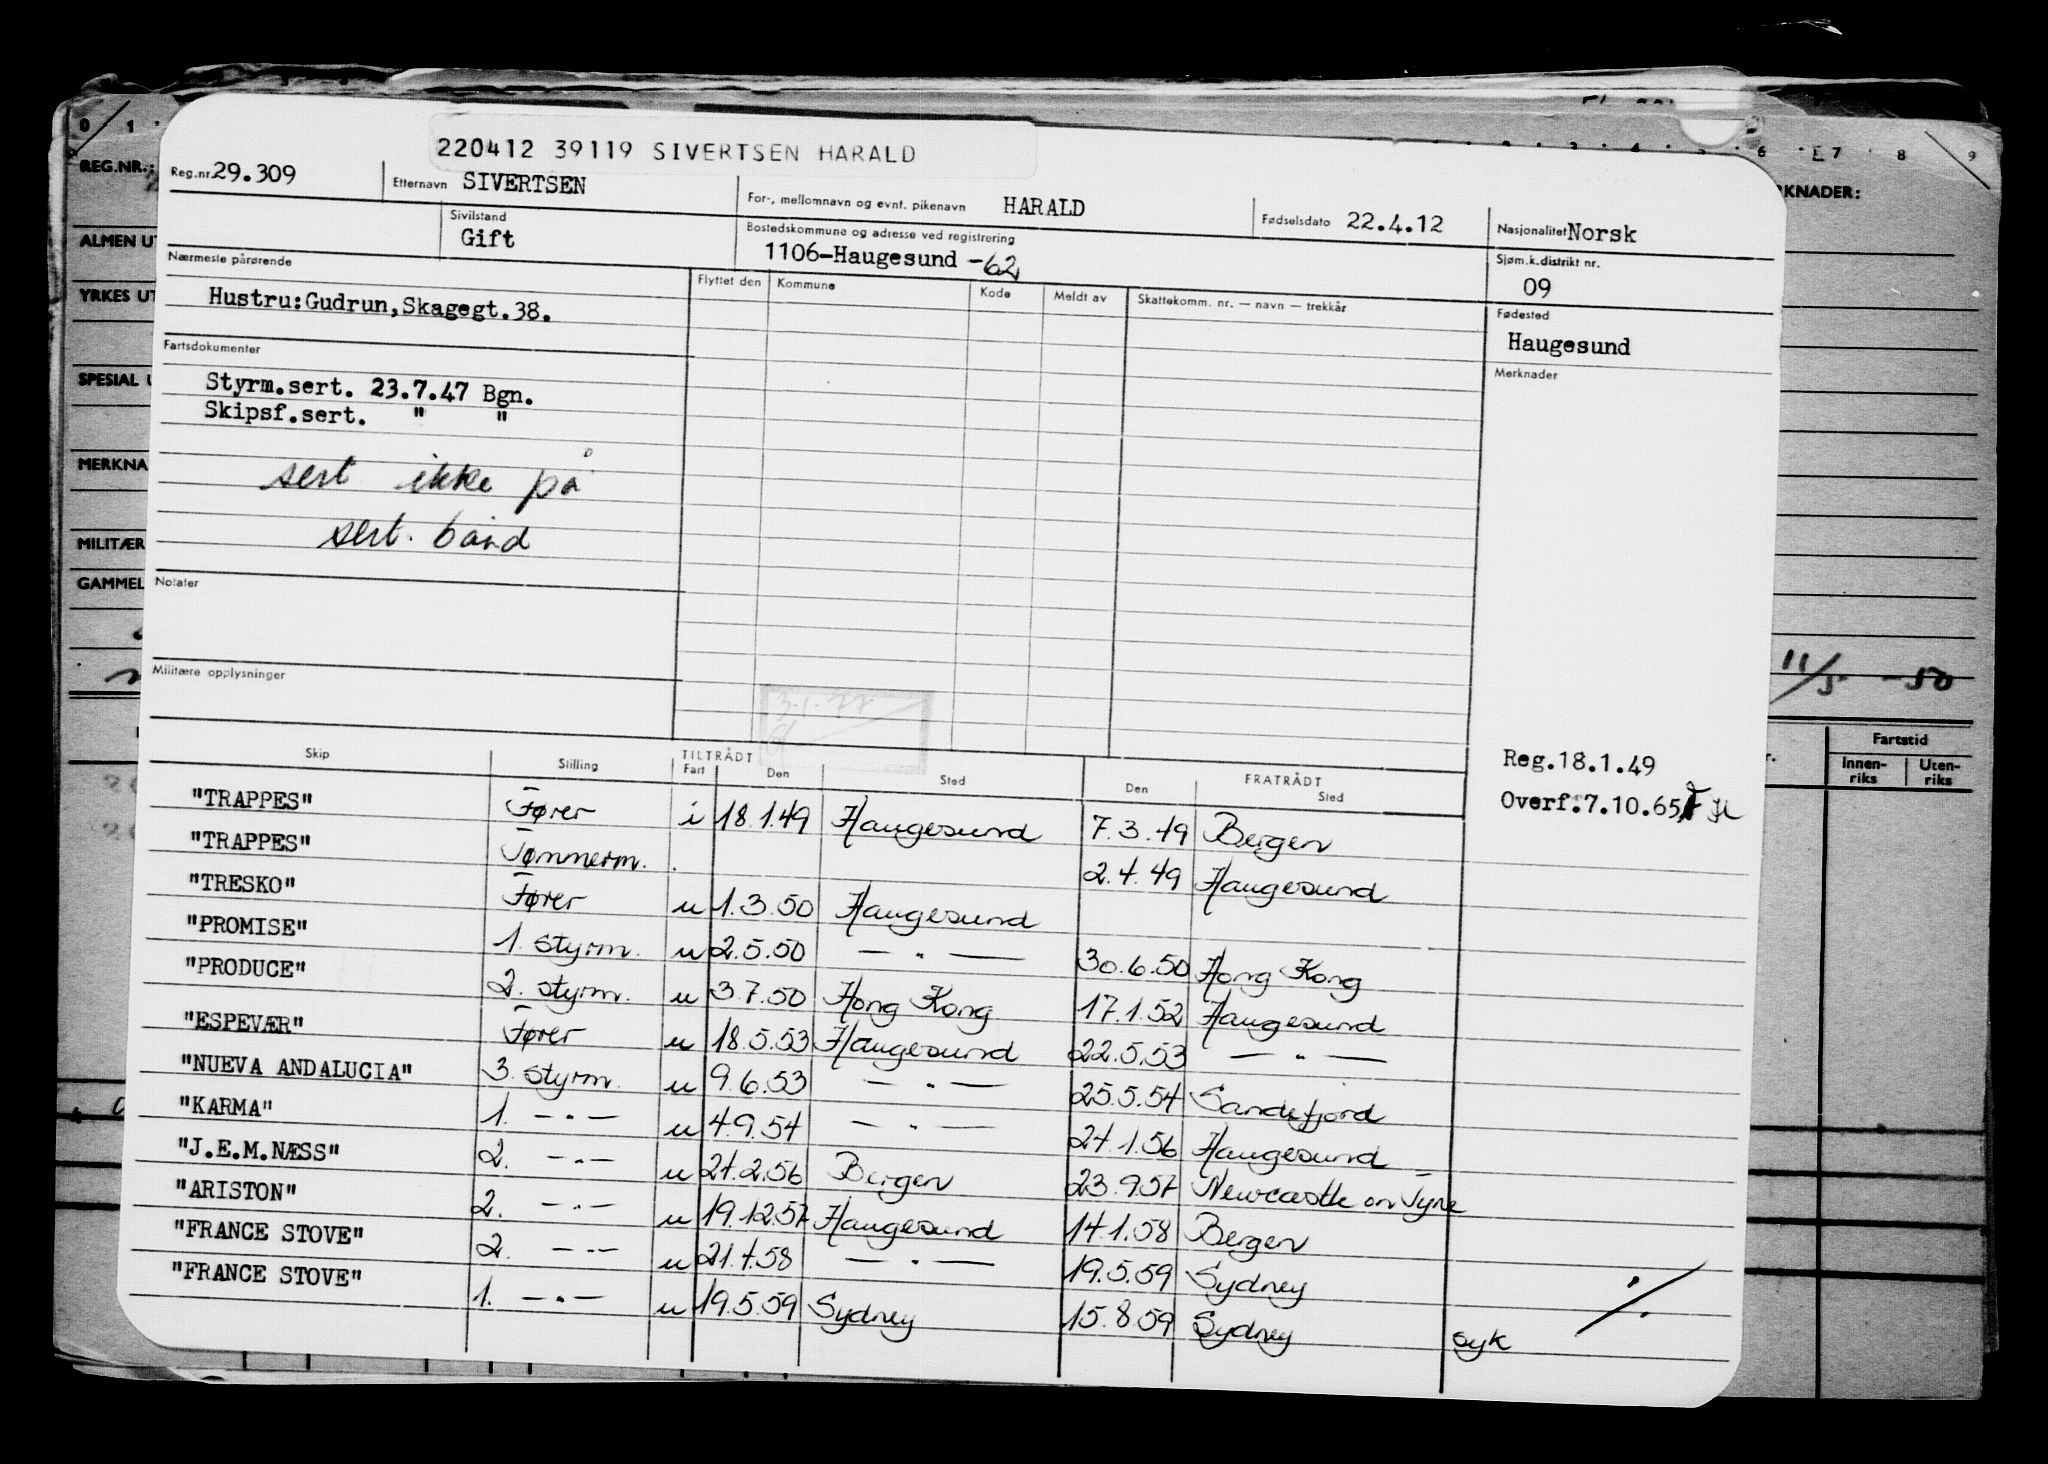 220412 39119 SIVERTSEN HARALD
Reg.nr. 29.309 Etternavn SIVERTSEN For-, mellomnavn og evnt. pikenavn HARALD Fødselsdato 22.4.12 Nasjonalitet Norsk
Sivilstand Gift Bostedskommune og adresse ved registrering 1106-Haugesund -62 Sjøm.k.distrikt nr. 09
Nærmeste pårørende Flyttet den Kommune Kode Meldt av Skattekomm. nr. — navn — trekkår Fødested
Hustru:Gudrun,Skagegt.38. Haugesund
Fartsdokumenter Merknader
Styrm.sert. 23.7.47 Bgn.
Skipsf.sert. " "
sert ikke på
sert. bånd
Notater
Militære opplysninger
Reg.18.1.49
Overf.7.10.65
Skip Stilling TILTRÅDT FRATRÅDT
Fart Den Sted Den Sted
"TRAPPES" Fører i 18.1.49 Haugesund 7.3.49 Bergen
"TRAPPES" Tømmerm. 2.4.49 Haugesund
"TRESKO" Fører u 1.3.50 Haugesund
"PROMISE" 1. styrm. u 2.5.50 — " — 30.6.50 Hong Kong
"PRODUCE" 2. styrm. u 3.7.50 Hong Kong 17.1.52 Haugesund
"ESPEVÆR" Fører u 18.5.53 Haugesund 22.5.53 — " —
"NUEVA ANDALUCIA" 3. styrm. u 9.6.53 — " — 25.5.54 Sandefjord
"KARMA" 1. — " — u 4.9.54 — " — 24.1.56 Haugesund
"J.E.M.NÆSS" 2. — " — u 24.2.56 Bergen 23.9.57 Newcastle on Tyne
"ARISTON" 2. — " — u 19.12.57 Haugesund 14.1.58 Bergen
"FRANCE STOVE" 2. — " — u 21.4.58 — " — 19.5.59 Sydney
"FRANCE STOVE" 1. — " — u 19.5.59 Sydney 15.8.59 Sydney syk
REG.NR.:
ALMEN UT
YRKES UT
SPESIAL U
MERKNA
MILITÆR
GAMMEL
0 1
6 7 8 9
RKNADER:
11/5 -50
Fartstid
Innenriks Utenriks